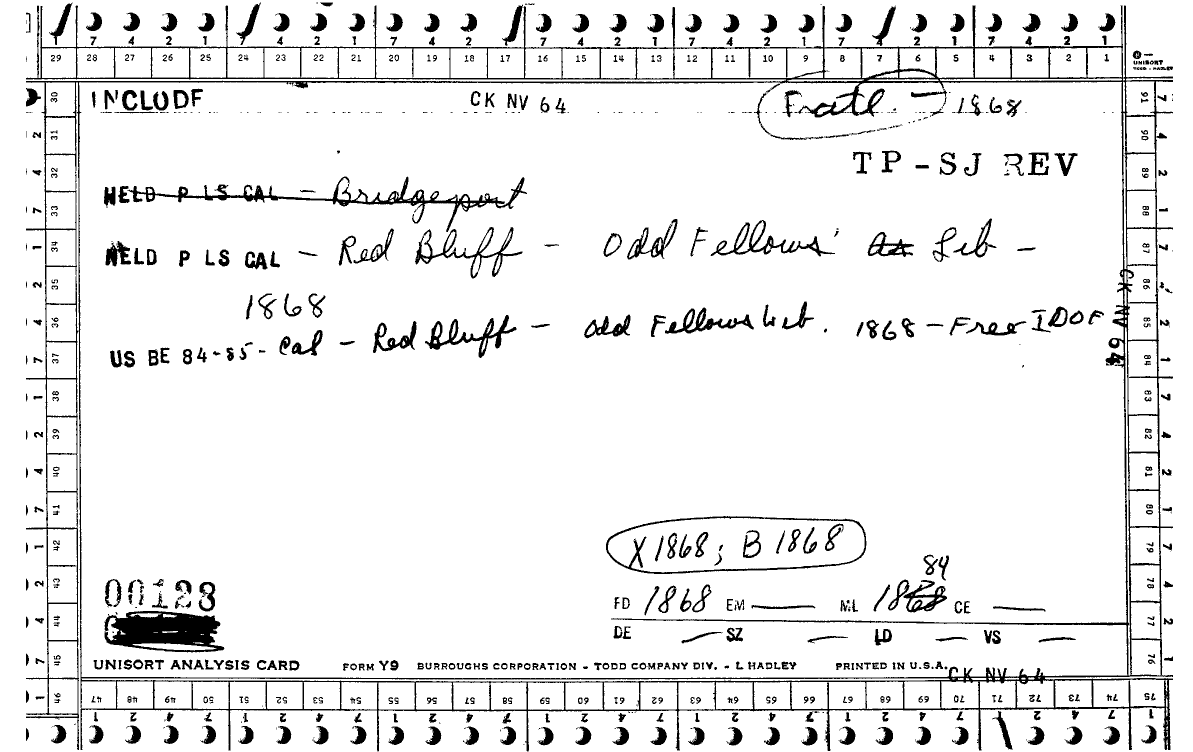 7 4 2 1 7 4 2 1 7 4 2 1 7 4 2 1 7 4 2 1 7 4 2 1 7 4 2 1
29 28 27 26 25 24 23 22 21 20 19 18 17 16 15 14 13 12 11 10 9 8 7 6 5 4 3 2 1
UNISORT
TODD - HADLEY
INCLUDF CK NV 64 Fratl. - 1868
TP-SJ REV
HELD P LS CAL - Bridgeport
HELD P LS CAL - Red Bluff - Odd Fellows' As Lib -
1868
US BE 84-85 - Cal - Red Bluff - Odd Fellows Lib. 1868 - Free IOOF
CK NV 64
X 1868; B 1868
84
00128
FD 1868 EM — ML 1868 CE —
DE — SZ — LD — VS —
UNISORT ANALYSIS CARD FORM Y9 BURROUGHS CORPORATION - TODD COMPANY DIV. - L HADLEY PRINTED IN U.S.A.
CK NV 64
30 31 32 33 34 35 36 37 38 39 40 41 42 43 44 45 46
91 90 89 88 87 86 85 84 83 82 81 80 79 78 77 76 75
47 48 49 50 51 52 53 54 55 56 57 58 59 60 61 62 63 64 65 66 67 68 69 70 71 72 73 74